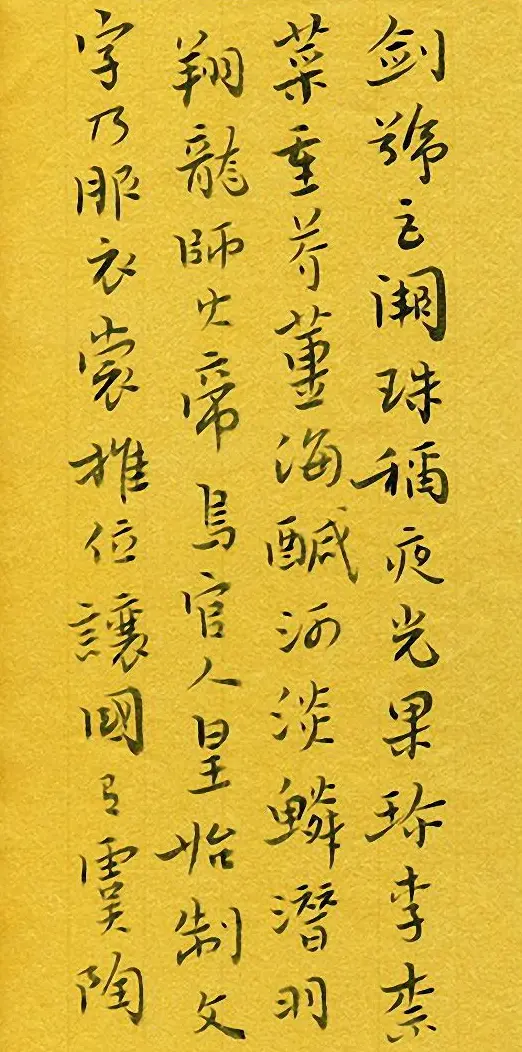 剑號巨闕珠稱夜光果珎李柰
菜重芥薑海醎河淡鱗潛羽
翔龍師火帝鳥官人皇始制文
字乃服衣裳推位讓國有虞陶